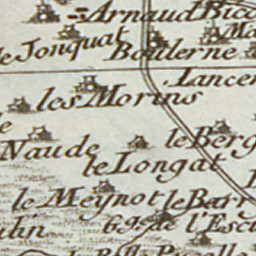 Arnaud Bicc
le Jonquat
Boulerne
Ma
Lancen
les Morins
le
Naude
le Berg
le Longat
le Meynot
le Barr
ulin
69e. de l'Escu